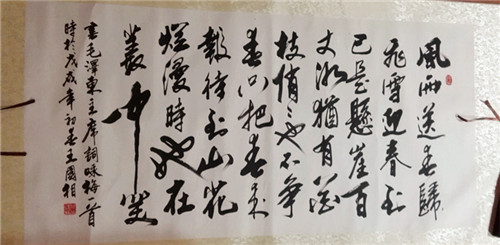 風雨送春歸
飛雪迎春到
已是懸崖百
丈冰猶有花
枝俏〻也不争
春只把春来
報待到山花
爛漫時她在
叢中笑
書毛澤東主席詞咏梅一首
時於戊戌年初春王國相